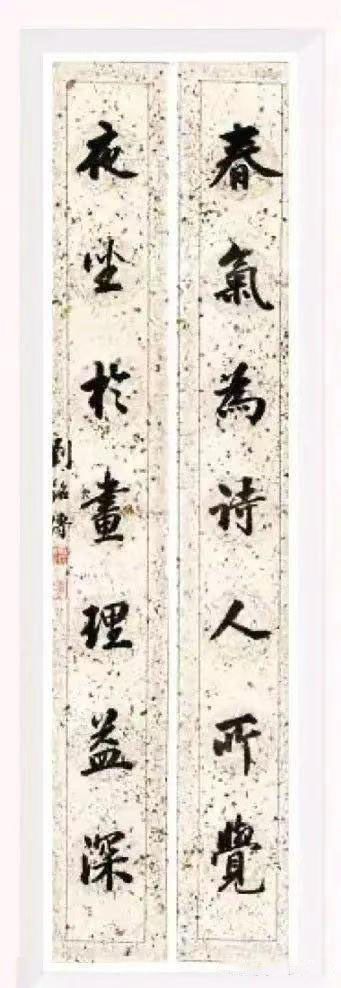 春氣為诗人所覺
夜坐於畫理益深
劉銘傳